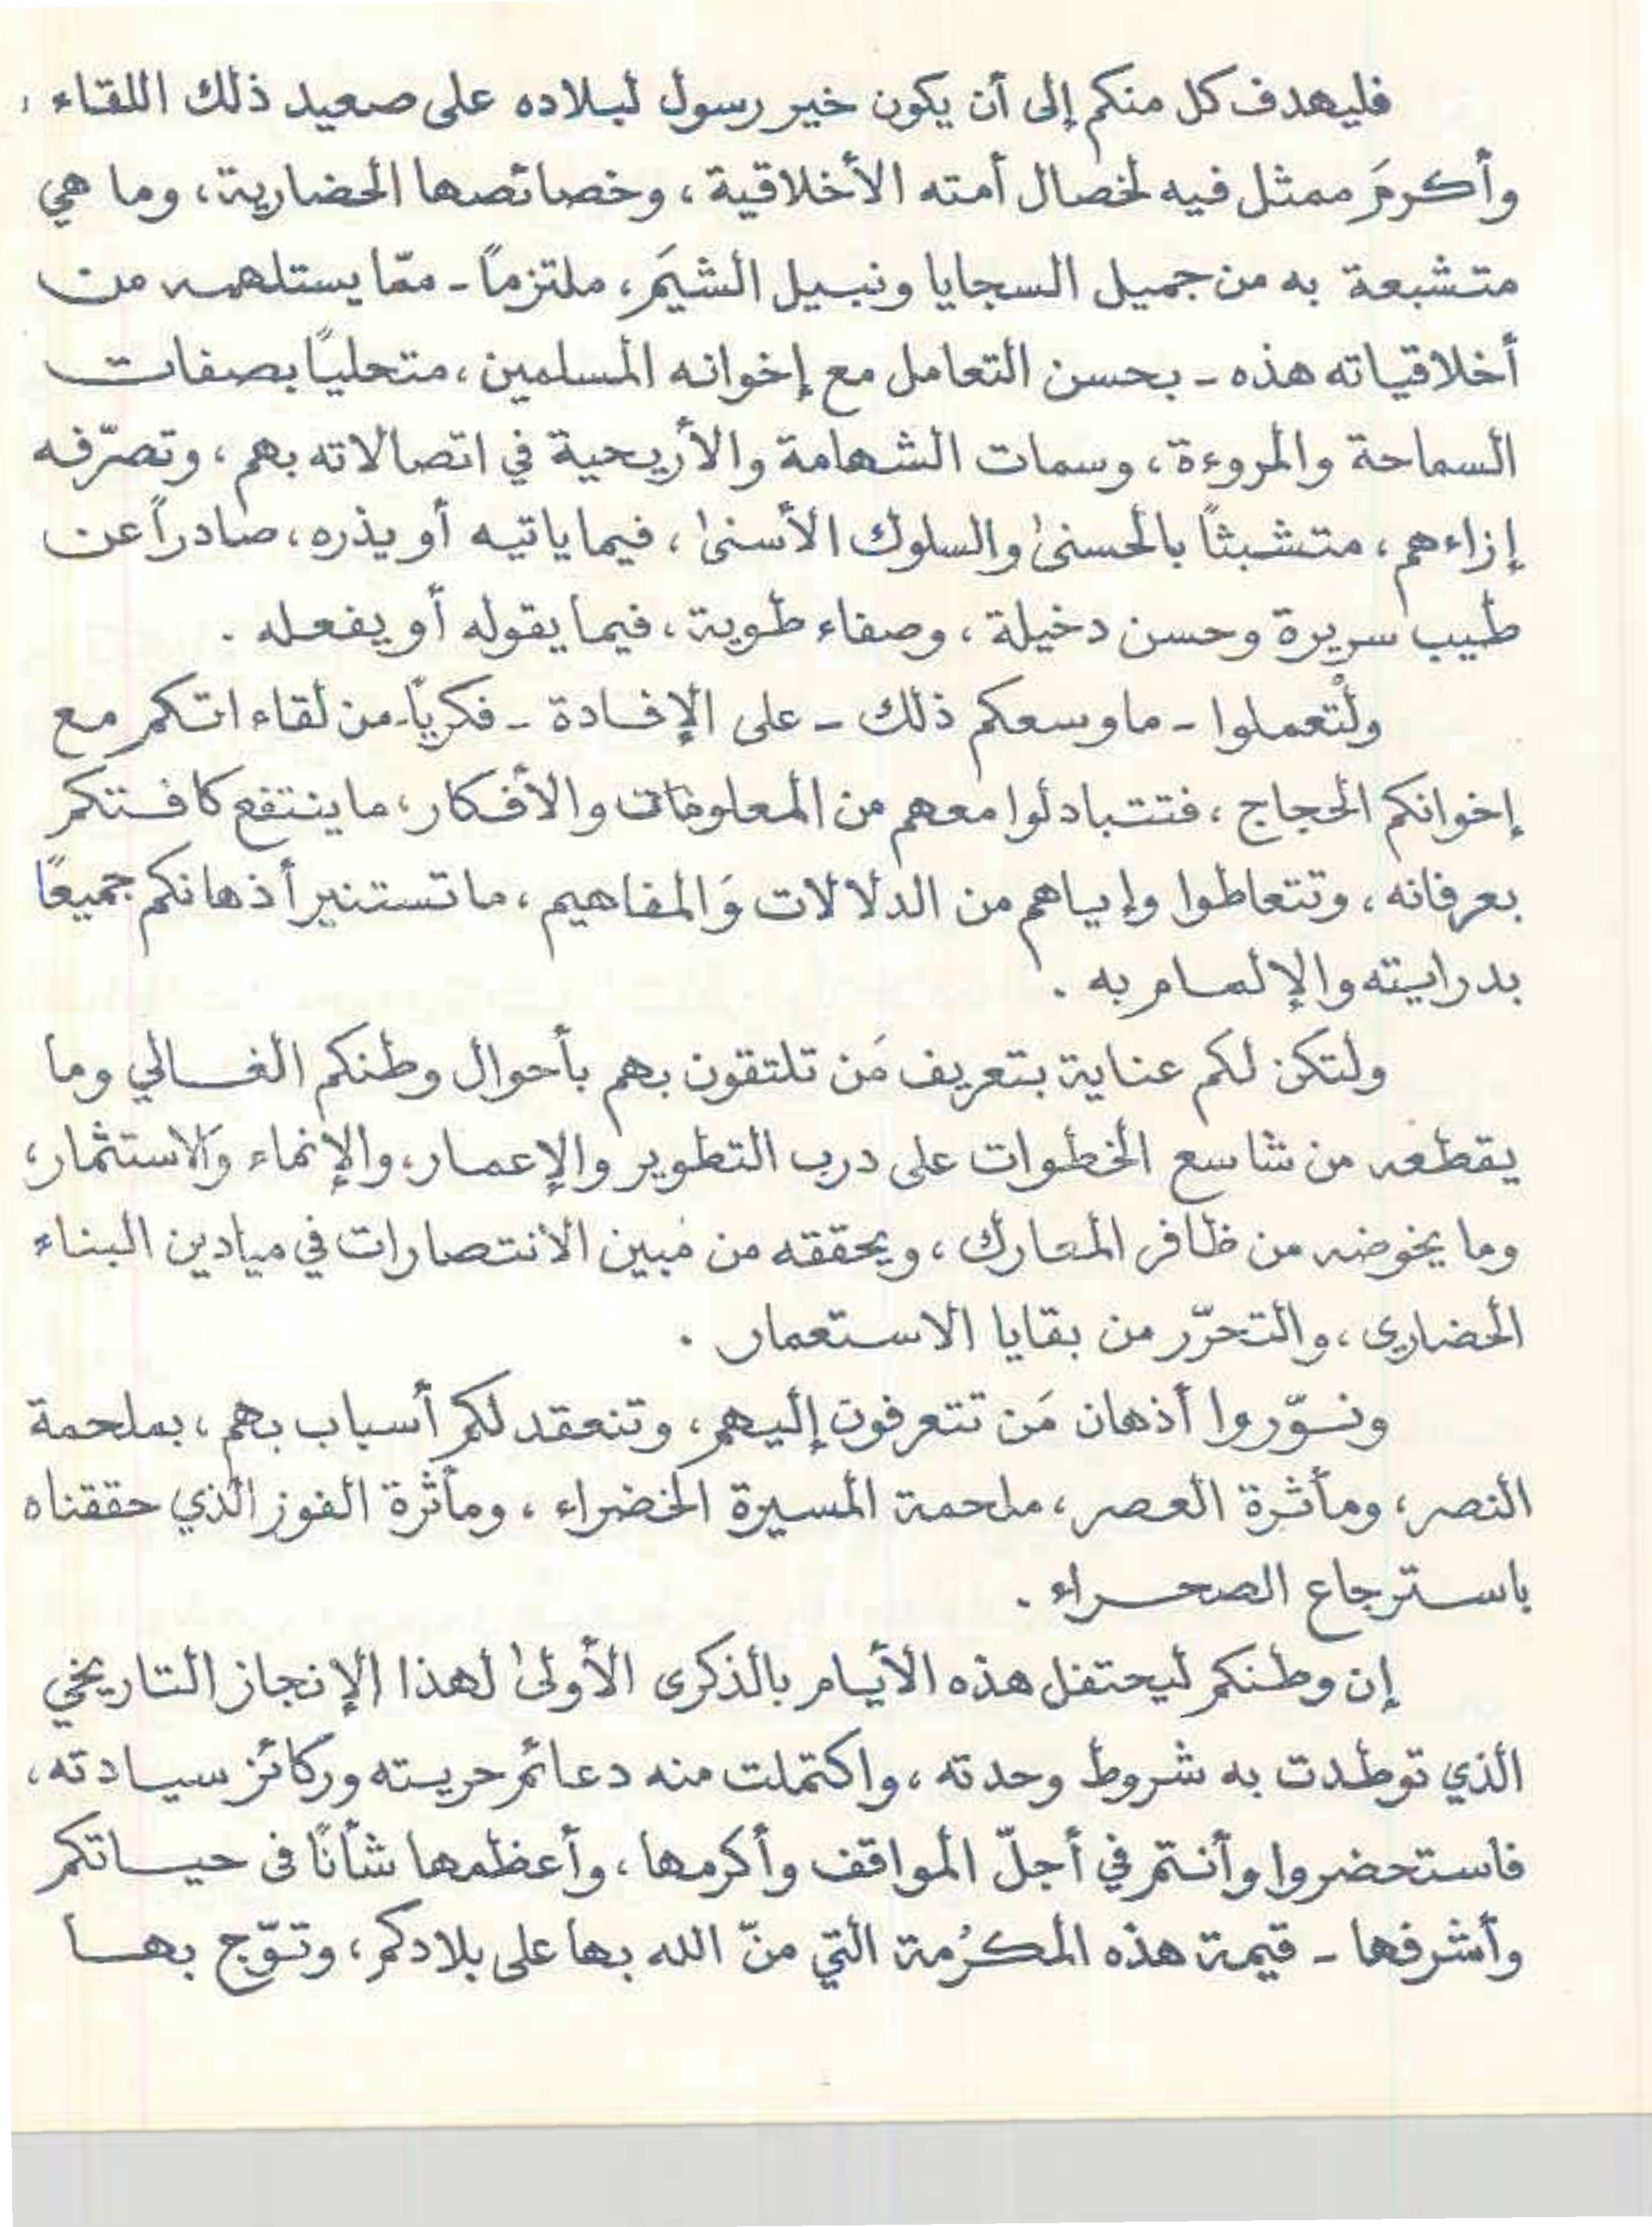 فليهدف كل منكم إلى أن يكون خير رسول لبلاده على صعيد ذلك اللقاء ،
وأكرمَ ممثل فيه لخصال أمته الأخلاقية ، وخصائصها الحضارية ، وما هي
متشبعة به من جميل السجايا ونبيل الشيَم ، ملتزماً - ممّا يستلهمه من
أخلاقياته هذه - بحسن التعامل مع إخوانه المسلمين ، متحلياً بصفات
السماحة والمروءة ، وسمات الشهامة والأريحية في اتصالاته بهم ، وتصرّفه
إزاءهم ، متشبثاً بالحسنىٰ والسلوك الأسنىٰ ، فيما ياتيه أو يذره ، صادراً عن
طيب سريرة وحسن دخيلة ، وصفاء طوية ، فيما يقوله أو يفعله .
ولْتعملوا - ما وسعكم ذلك - على الإفادة - فكرياً - من لقاءاتكم مع
إخوانكم الحجاج ، فتتبادلوا معهم من المعلومات والأفكار ، ما ينتفع كافتكم
بعرفانه ، وتتعاطوا وإياهم من الدلالات وَالمفاهيم ، ما تستنير أذهانكم جميعًا
بدرايته والإلمام به .
ولتكن لكم عناية بتعريف مَن تلتقون بهم بأحوال وطنكم الغالي وما
يقطعه من شاسع الخطوات على درب التطوير والإعمار ، والإنماء والاستثمار ،
وما يخوضه من ظافر المعارك ، ويحققه من مُبين الانتصارات في ميادين البناء
الحضاري ، والتحرّر من بقايا الاستعمار .
ونوّروا أذهان مَن تتعرفون إليهم ، وتنعقد لكم أسباب بهم ، بملحمة
النصر ، ومأثرة العصر ، ملحمة المسيرة الخضراء ، ومأثرة الفوز الذي حققناه
باسترجاع الصحراء .
إن وطنكم ليحتفل هذه الأيام بالذكرى الأولىٰ لهذا الإنجاز التاريخي
الذي توطدت به شروط وحدته ، واكتملت منه دعائم حريته وركائز سيادته ،
فاستحضروا وأنتم في أجلّ المواقف وأكرمها ، وأعظمها شأنًا فى حياتكم
وأشرفها - قيمة هذه المكرُمة التي منّ الله بها على بلادكم ، وتوّج بها